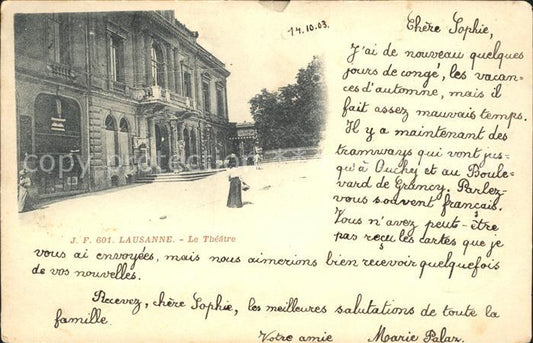 14.10.03.
Chère Sophie,
J'ai de nouveau quelques
jours de congé, les vacan-
ces d'automne, mais il
fait assez mauvais temps.
Il y a maintenant des
tramways qui vont jus-
qu'à Ouchy et au Boule-
vard de Grancy. Parlez-
vous souvent français.
Vous n'avez peut-être
pas reçu les cartes que je
vous ai envoyées, mais nous aimerions bien recevoir quelquefois
de vos nouvelles.
Recevez, chère Sophie, les meilleures salutations de toute la
famille.
Votre amie Marie Palaz.
J. F. 601. LAUSANNE. - Le Théâtre